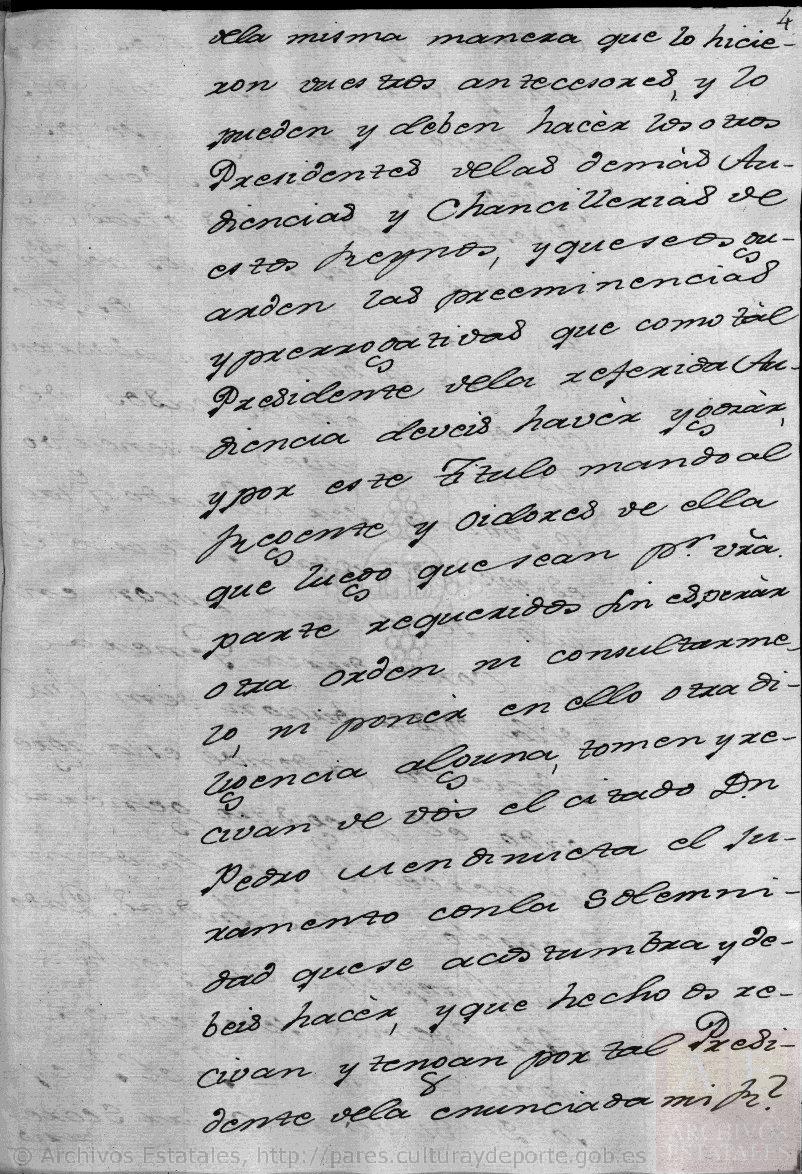 4
dela misma manera que lo hicie-
ron vuestros antecesores, y lo
pueden y deben hacèr los otros
Presidentes delas demàs Au-
diencias y Chancillerias de
estos Reynos, y que se os gu-
arden las preeminencias
y prerrogativas que como tàl
Presidente dela referida Au-
diencia deveis havèr y gozàr,
y por este Titulo mando al
Regente y oidores de ella
que luego que sean pr. vrã.
parte requeridos sin esperàr
otra orden ni consultarme-
lo, ni ponèr en ello otra di-
ligencia alguna, tomen y re-
civan de vòs el citado Dn.
Pedro Mendinueta el Ju-
ramento conla Solemni-
dad que se acostumbra y de-
beis hacèr, y que hecho os re-
civan y tengan por tal Presi-
dente dela enunciada mi Rl.
© Archivos Estatales, http://pares.culturaydeporte.gob.es
ARCHIVOS
ESTATALES